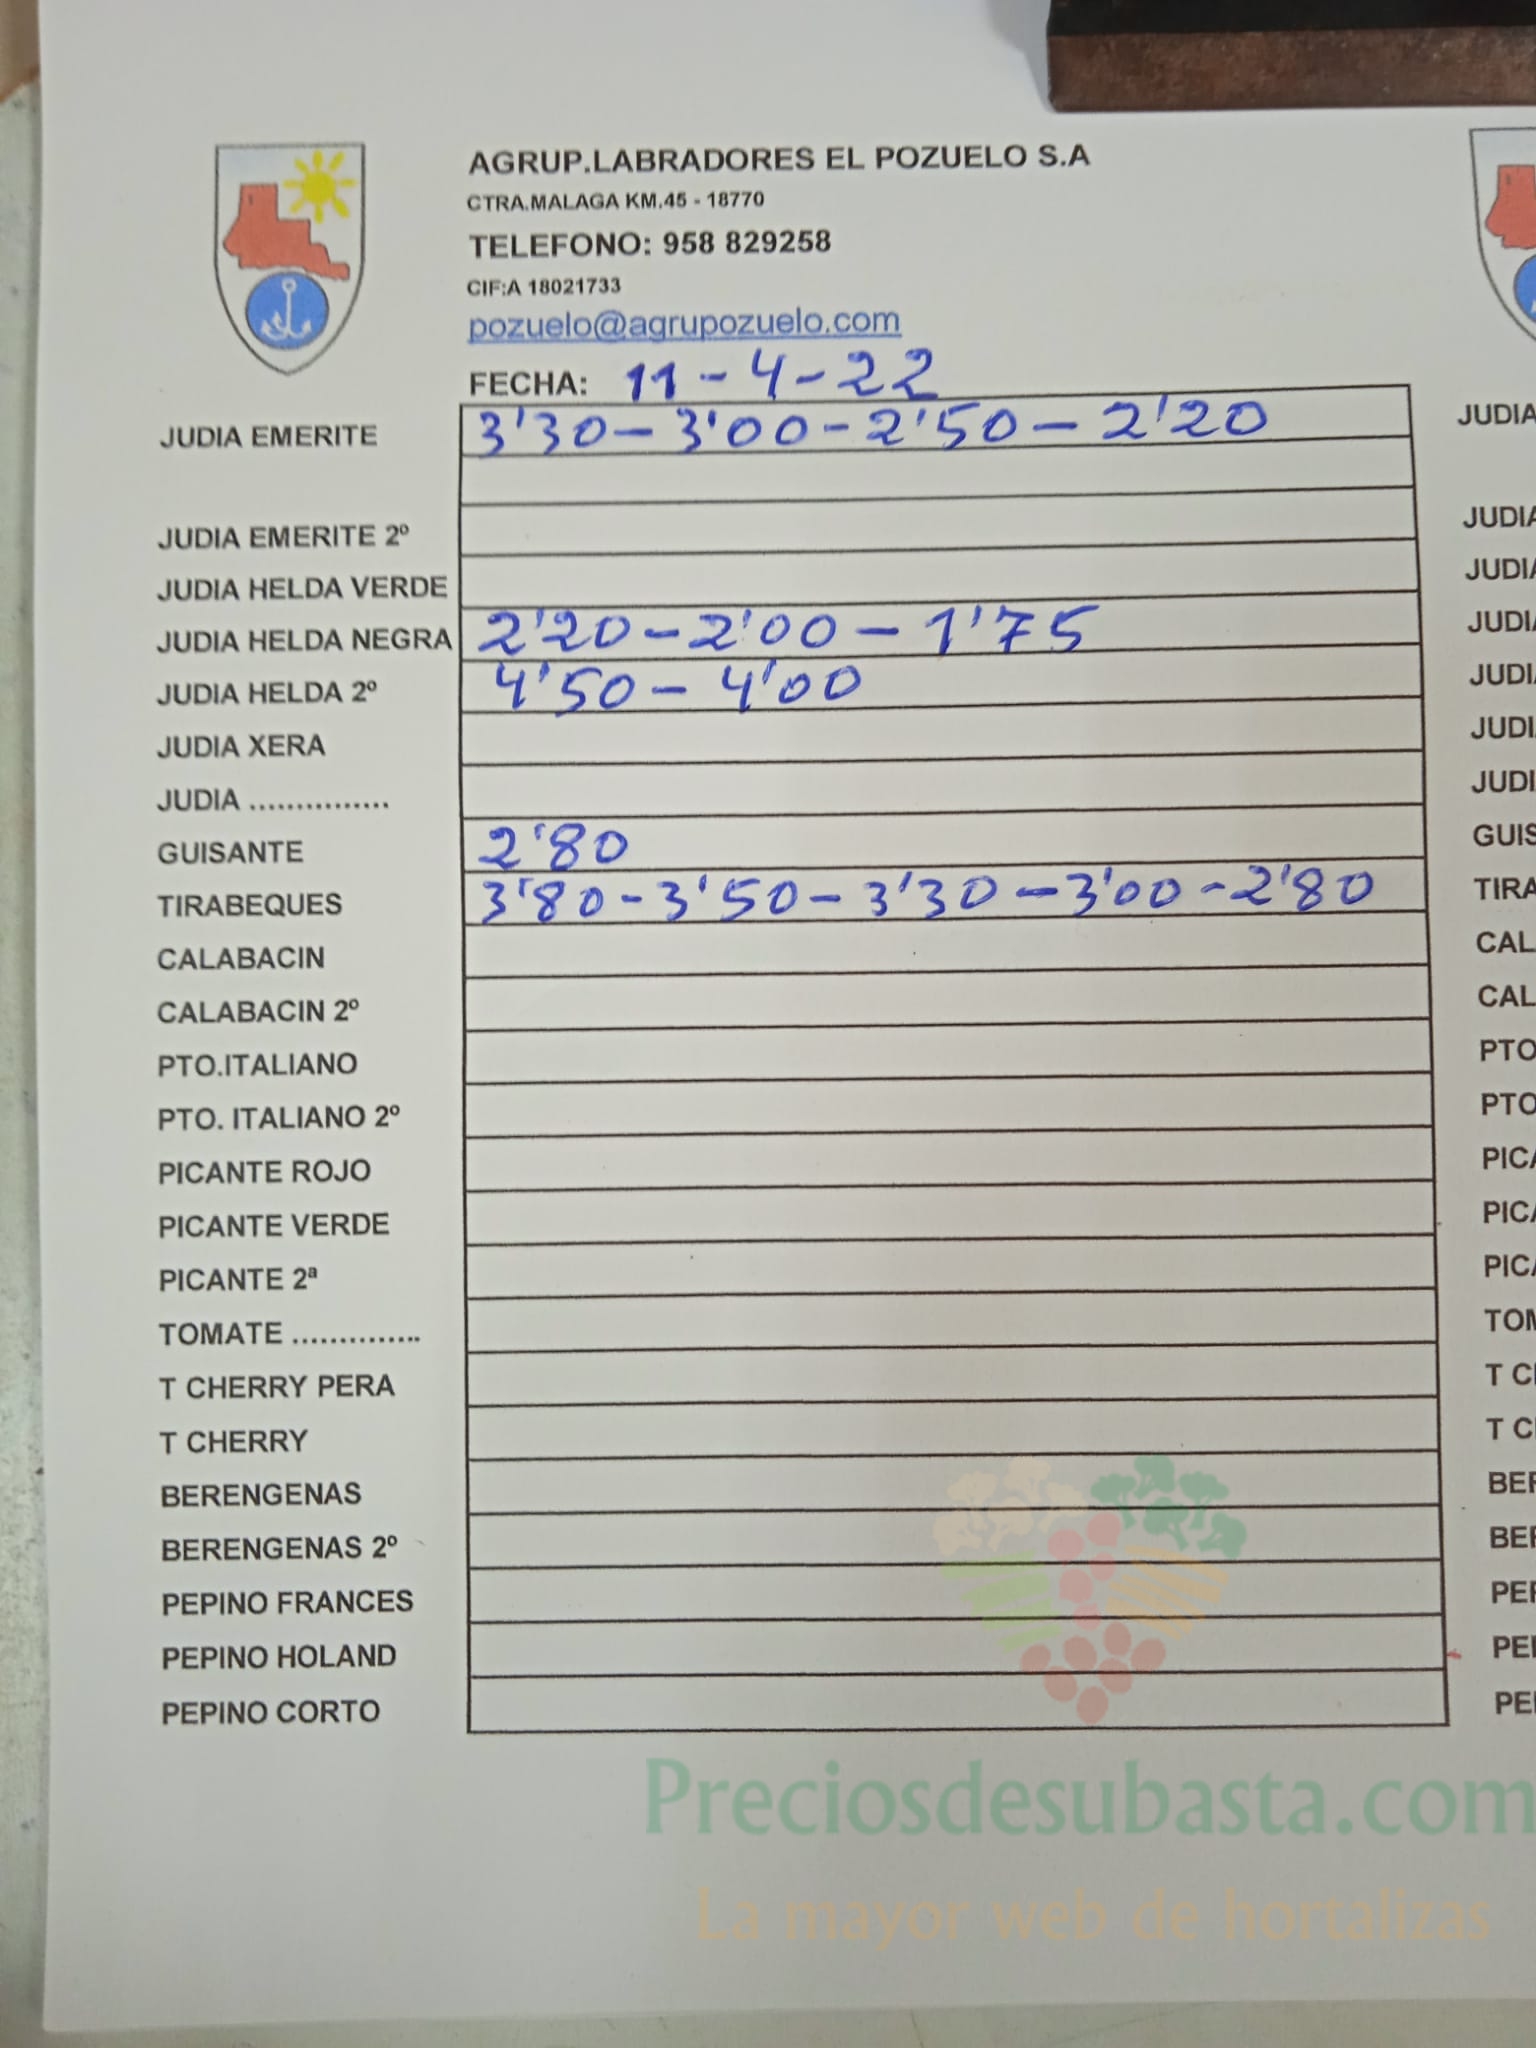 AGRUP.LABRADORES EL POZUELO S.A
CTRA.MALAGA KM.45 - 18770
TELEFONO: 958 829258
CIF:A 18021733
pozuelo@agrupozuelo.com
FECHA: 11-4-22
JUDIA EMERITE 3'30-3'00-2'50-2'20
JUDIA EMERITE 2º
JUDIA HELDA VERDE
JUDIA HELDA NEGRA 2'20-2'00-1'75
JUDIA HELDA 2º 4'50-4'00
JUDIA XERA
JUDIA ...............
GUISANTE 2'80
TIRABEQUES 3'80-3'50-3'30-3'00-2'80
CALABACIN
CALABACIN 2º
PTO.ITALIANO
PTO. ITALIANO 2º
PICANTE ROJO
PICANTE VERDE
PICANTE 2ª
TOMATE ..............
T CHERRY PERA
T CHERRY
BERENGENAS
BERENGENAS 2º
PEPINO FRANCES
PEPINO HOLAND
PEPINO CORTO
JUDIA
JUDIA
JUDIA
JUDIA
JUDIA
JUDI
JUDI
GUIS
TIRA
CAL
CAL
PTO
PTO
PICA
PICA
PICA
TOM
T CH
T CH
BER
BER
PEP
PEP
PEP
Preciosdesubasta.com
La mayor web de hortalizas